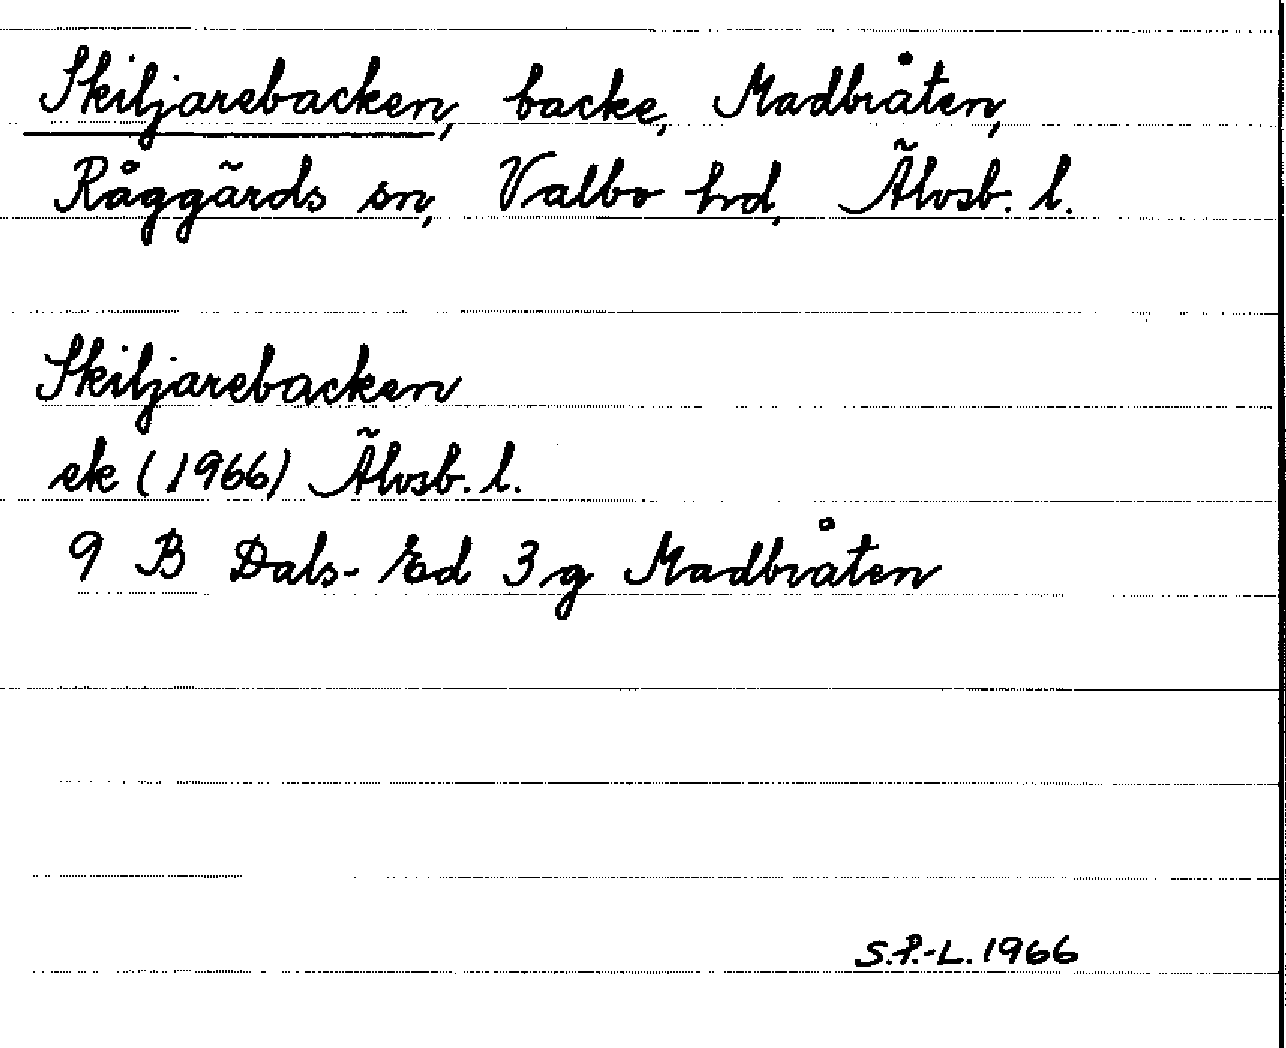 Skiljarebacken, backe, Madbråten,
Råggärds sn, Valbo hd, Älvsb. l.
Skiljarebacken
ek (1966) Älvsb. l.
9 B Dals-Ed 3 g Madbråten
S.P.-L. 1966